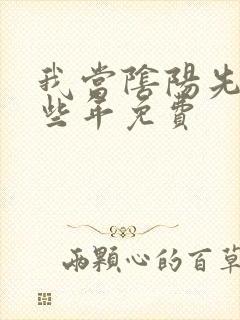 我當陰陽先
些年免費
兩顆心的百草